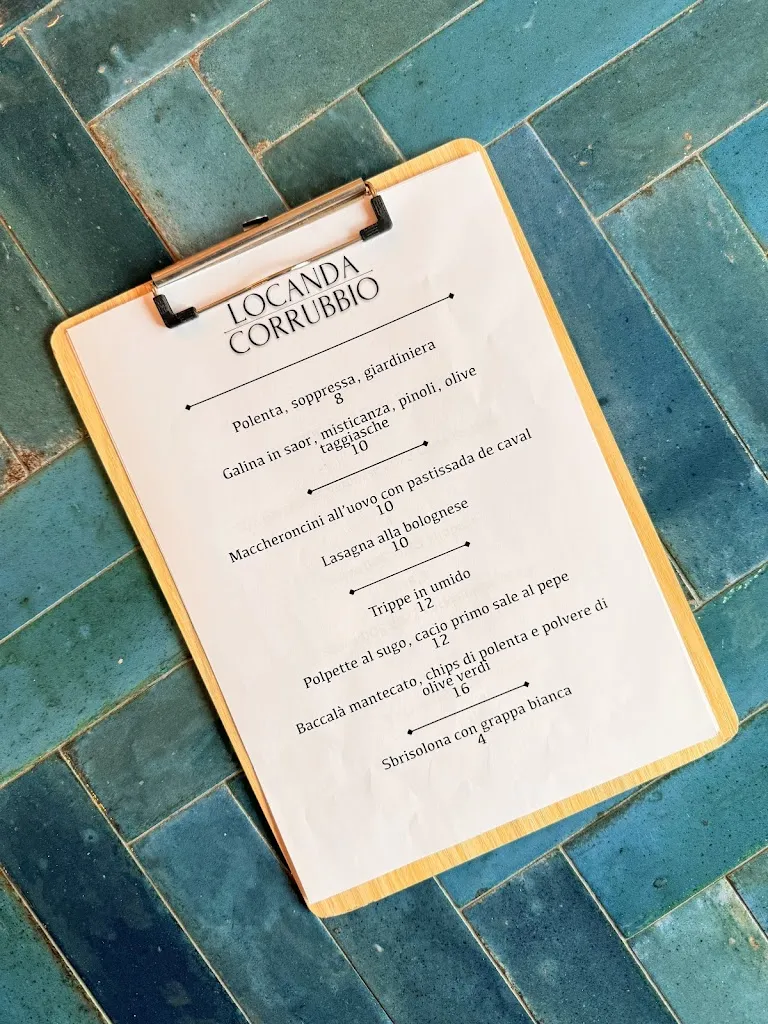 LOCANDA
CORRUBBIO
Polenta, soppressa, giardiniera
8
Galina in saor, misticanza, pinoli, olive
taggiasche
10
Maccheroncini all'uovo con pastissada de caval
10
Lasagna alla bolognese
10
Trippe in umido
12
Polpette al sugo, cacio primo sale al pepe
12
Baccalà mantecato, chips di polenta e polvere di
olive verdi
16
Sbrisolona con grappa bianca
4